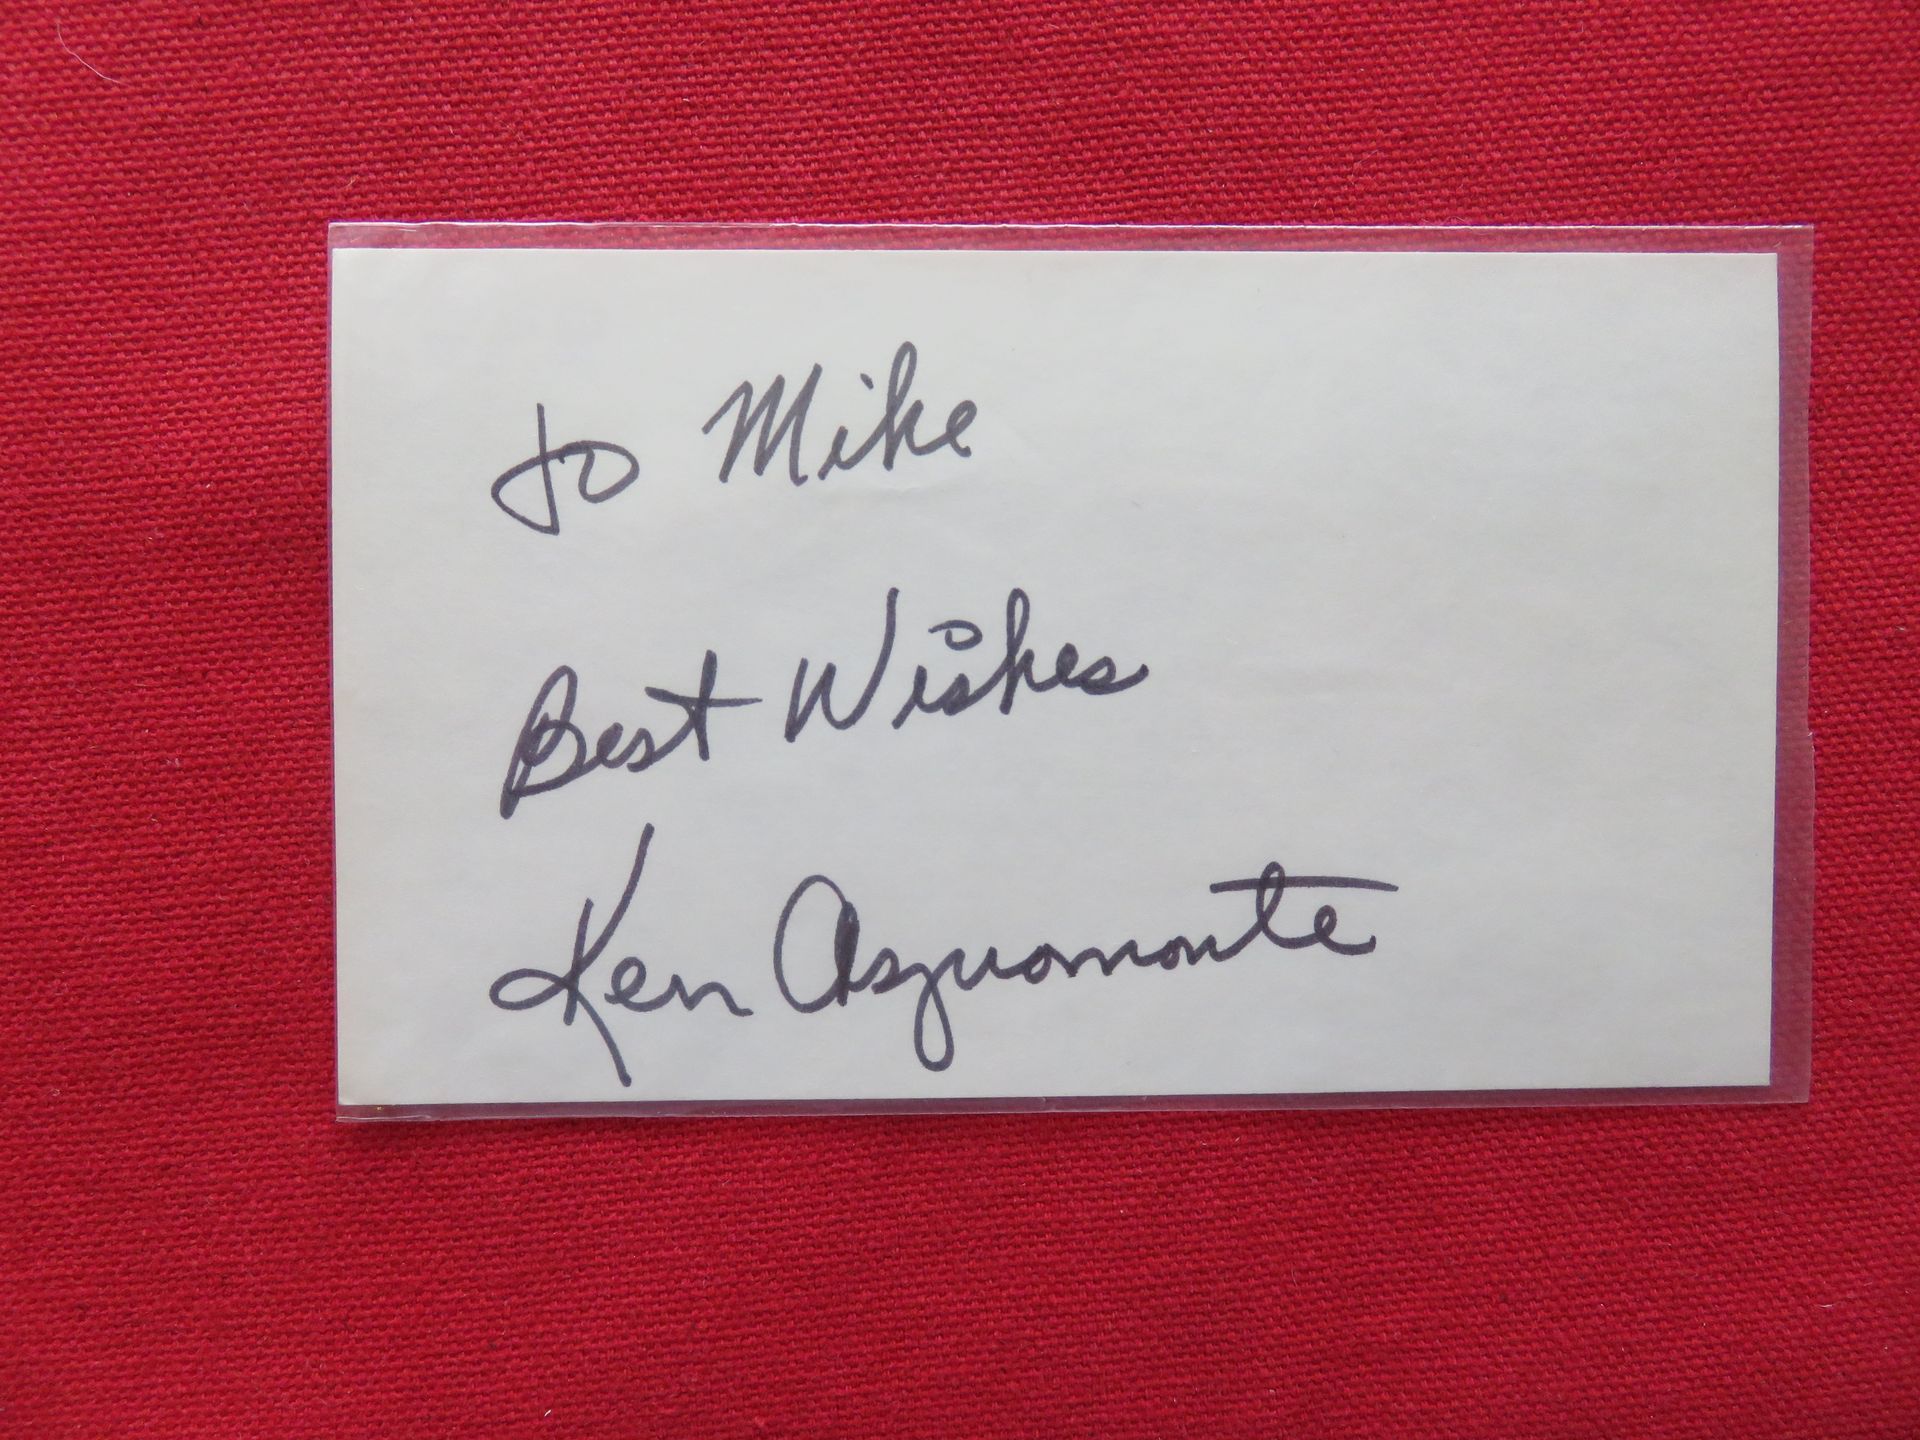 To Mike
Best Wishes
Ken Aspromonte